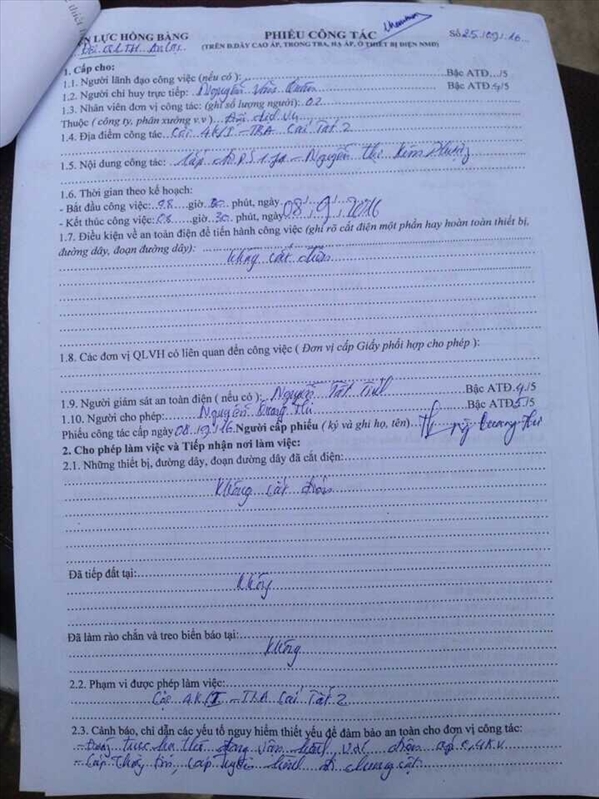 ỆN LỰC HỒNG BÀNG PHIẾU CÔNG TÁC Số 25/09/16
(TRÊN Đ.DÂY CAO ÁP, TRONG TBA, HẠ ÁP, Ở THIẾT BỊ ĐIỆN NMĐ)
1. Cấp cho:
1.1. Người lãnh đạo công việc (nếu có): Bậc ATĐ.../5
1.2. Người chỉ huy trực tiếp: Nguyễn Văn Bậc ATĐ 4/5
1.3. Nhân viên đơn vị công tác: (ghi số lượng người): 02
Thuộc ( công ty, phân xưởng v.v ) Đội dịch vụ
1.4. Địa điểm công tác Cột 4K/I - TBA Cái Tắt 2
1.5. Nội dung công tác: - Nguyễn Thị Kim
1.6. Thời gian theo kế hoạch:
- Bắt đầu công việc: 08 giờ 00 phút, ngày 08/9/2016
- Kết thúc công việc: 08 giờ 30 phút, ngày
1.7. Điều kiện về an toàn điện để tiến hành công việc (ghi rõ cắt điện một phần hay hoàn toàn thiết bị,
đường dây, đoạn đường dây):
Không cắt điện
1.8. Các đơn vị QLVH có liên quan đến công việc ( Đơn vị cấp Giấy phối hợp cho phép ):
1.9. Người giám sát an toàn điện ( nếu có ): Nguyễn Tất Bậc ATĐ.4/5
1.10. Người cho phép: Nguyễn Bậc ATĐ5/5
Phiếu công tác cấp ngày 08/9/16 Người cấp phiếu ( ký và ghi họ, tên)
2. Cho phép làm việc và Tiếp nhận nơi làm việc:
2.1. Những thiết bị, đường dây, đoạn đường dây đã cắt điện:
Không cắt điện
Đã tiếp đất tại:
Không
Đã làm rào chắn và treo biển báo tại:
Không
2.2. Phạm vi được phép làm việc:
Cột 4K/I - TBA Cái Tắt 2
2.3. Cảnh báo, chỉ dẫn các yếu tố nguy hiểm thiết yếu để đảm bảo an toàn cho đơn vị công tác:
- Đường trục hạ thế đang vận hành với điện áp 0,4KV
- Cáp thông tin, cáp truyền hình đi chung cột